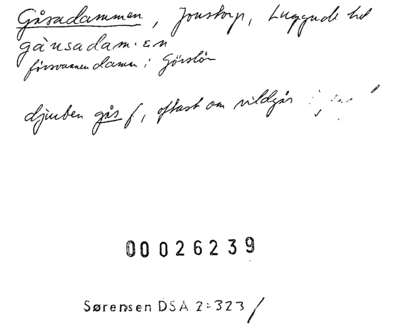 Gåsadammen, Jonstorp, Luggude hd
gåusadam·εn
försvunnen damm i Görslöv
djurben gås f, oftast om vildgås
00026239
Sørensen DSA 2:323/